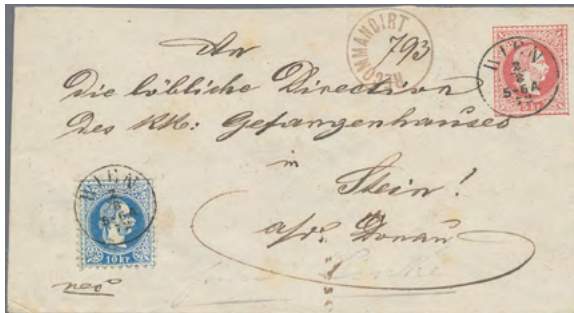 RECOMMANDIRT
WIEN
An
793
die löbliche Direction
des KK: Gefangenhauses
in
Stein!
a/d. Donau
WIEN
10 kr.